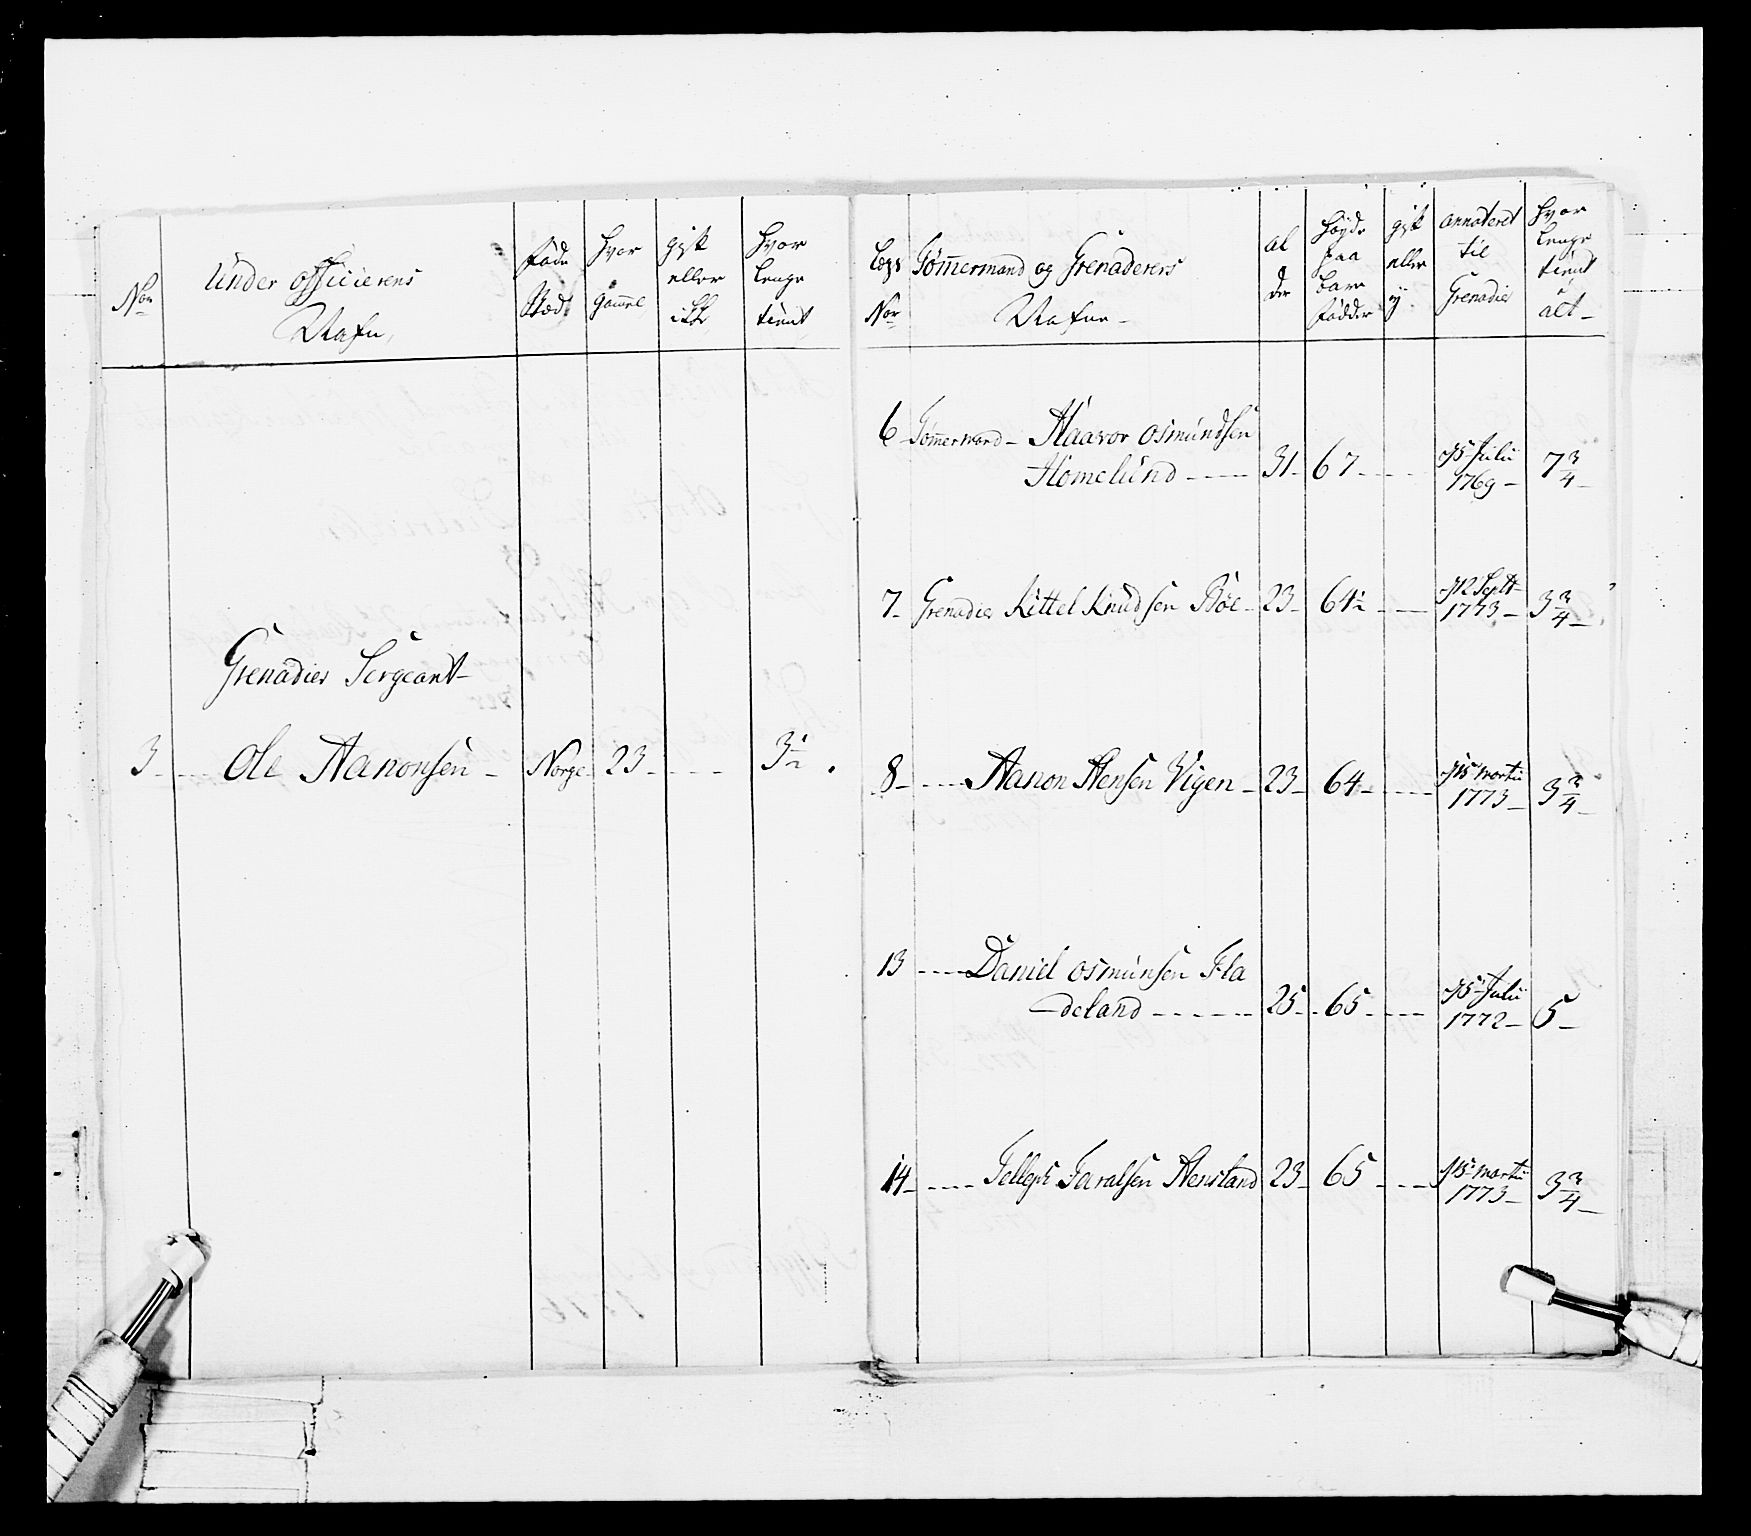 No
Under officierens
Nafn,
føde
Stæd
hvor
gamel
gift
eller
ikke
hvor
lenge
tient
Grenadier Sergeant
3 - Ole Aanonsen - Norge 23 - - - 3½
Legs
No
Tømermænd og Grenaderers
Nafne -
al
der
høyde
paa
bare
fødder
gift
eller
ey
annoteret
til
Grenadier
hvor
lenge
tient
alt -
6 Tømermand - Haavor Osmundsen
Homelund - - - 31 - 67 - - - d 15 Julii 1769 - 7¾ -
7 - Grenadier Kittel Knudsen Bøe - 23 - 64½ - - d 12 Sept 1773 - 3¾ -
8 - - - - Aanon Stensen Vigen - 23 - 64 - - - d 15 Martii 1773 - 3¾ -
13 - - - - Daniel Osmunsen Fla
deland - - - - - 25 - 65 - - - d 15 Julii 1772 - 5 -
14 - - - - Tellef Taralsen 23 - 65 - - - d 15 Martii 1773 - 3¾ -